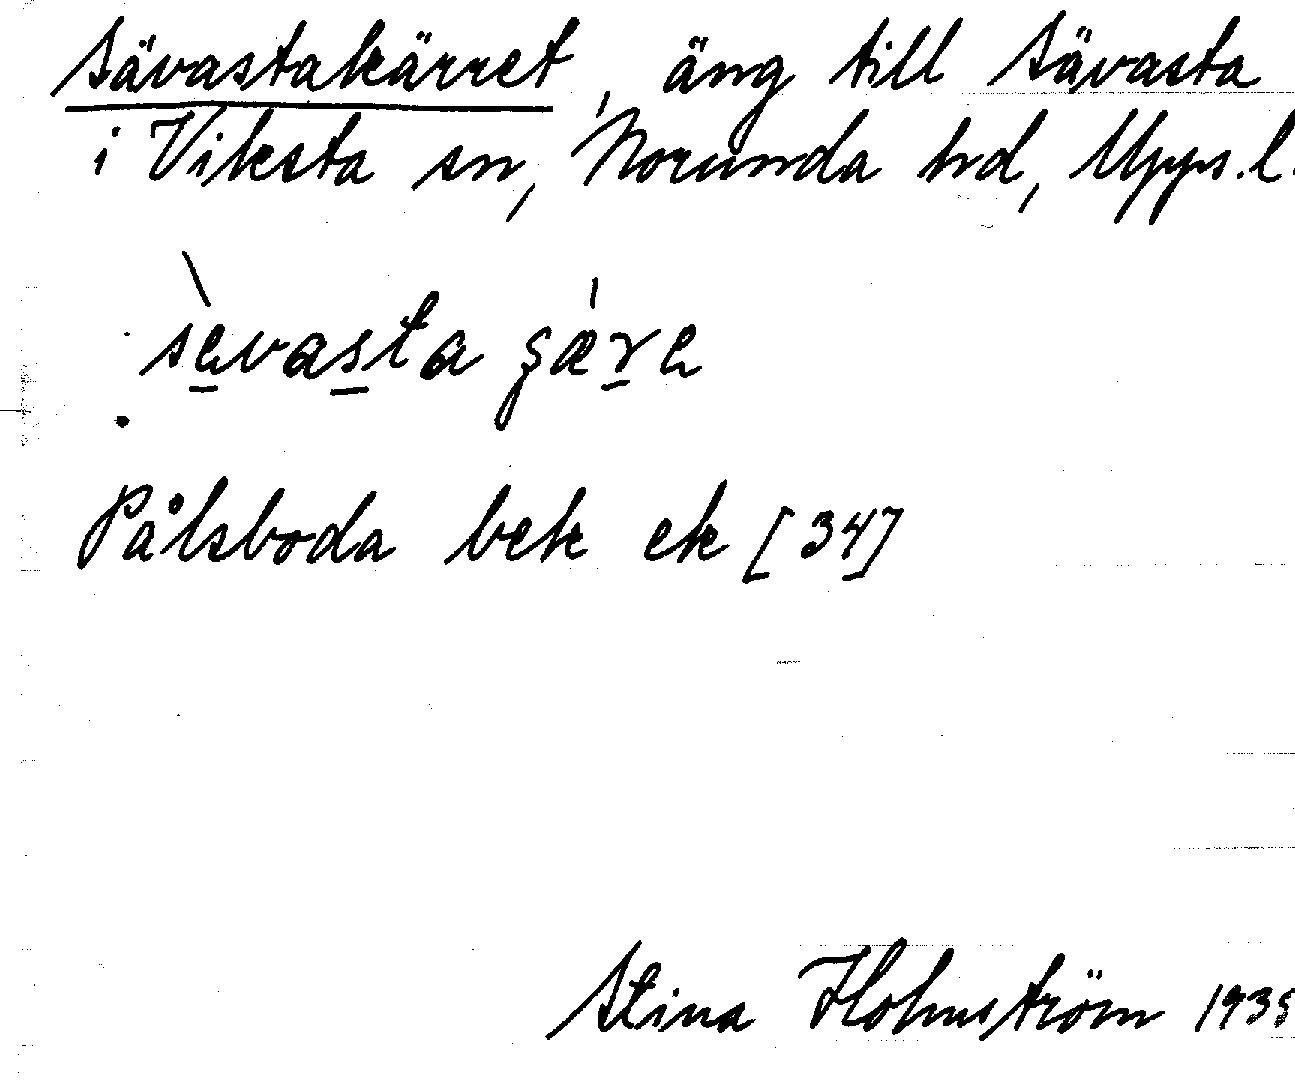 Sävastakärret, äng till Sävasta
i Viksta sn, Norunda hd, Upps.l.
Pålsboda bek ek [34]
Stina Holmström 1935